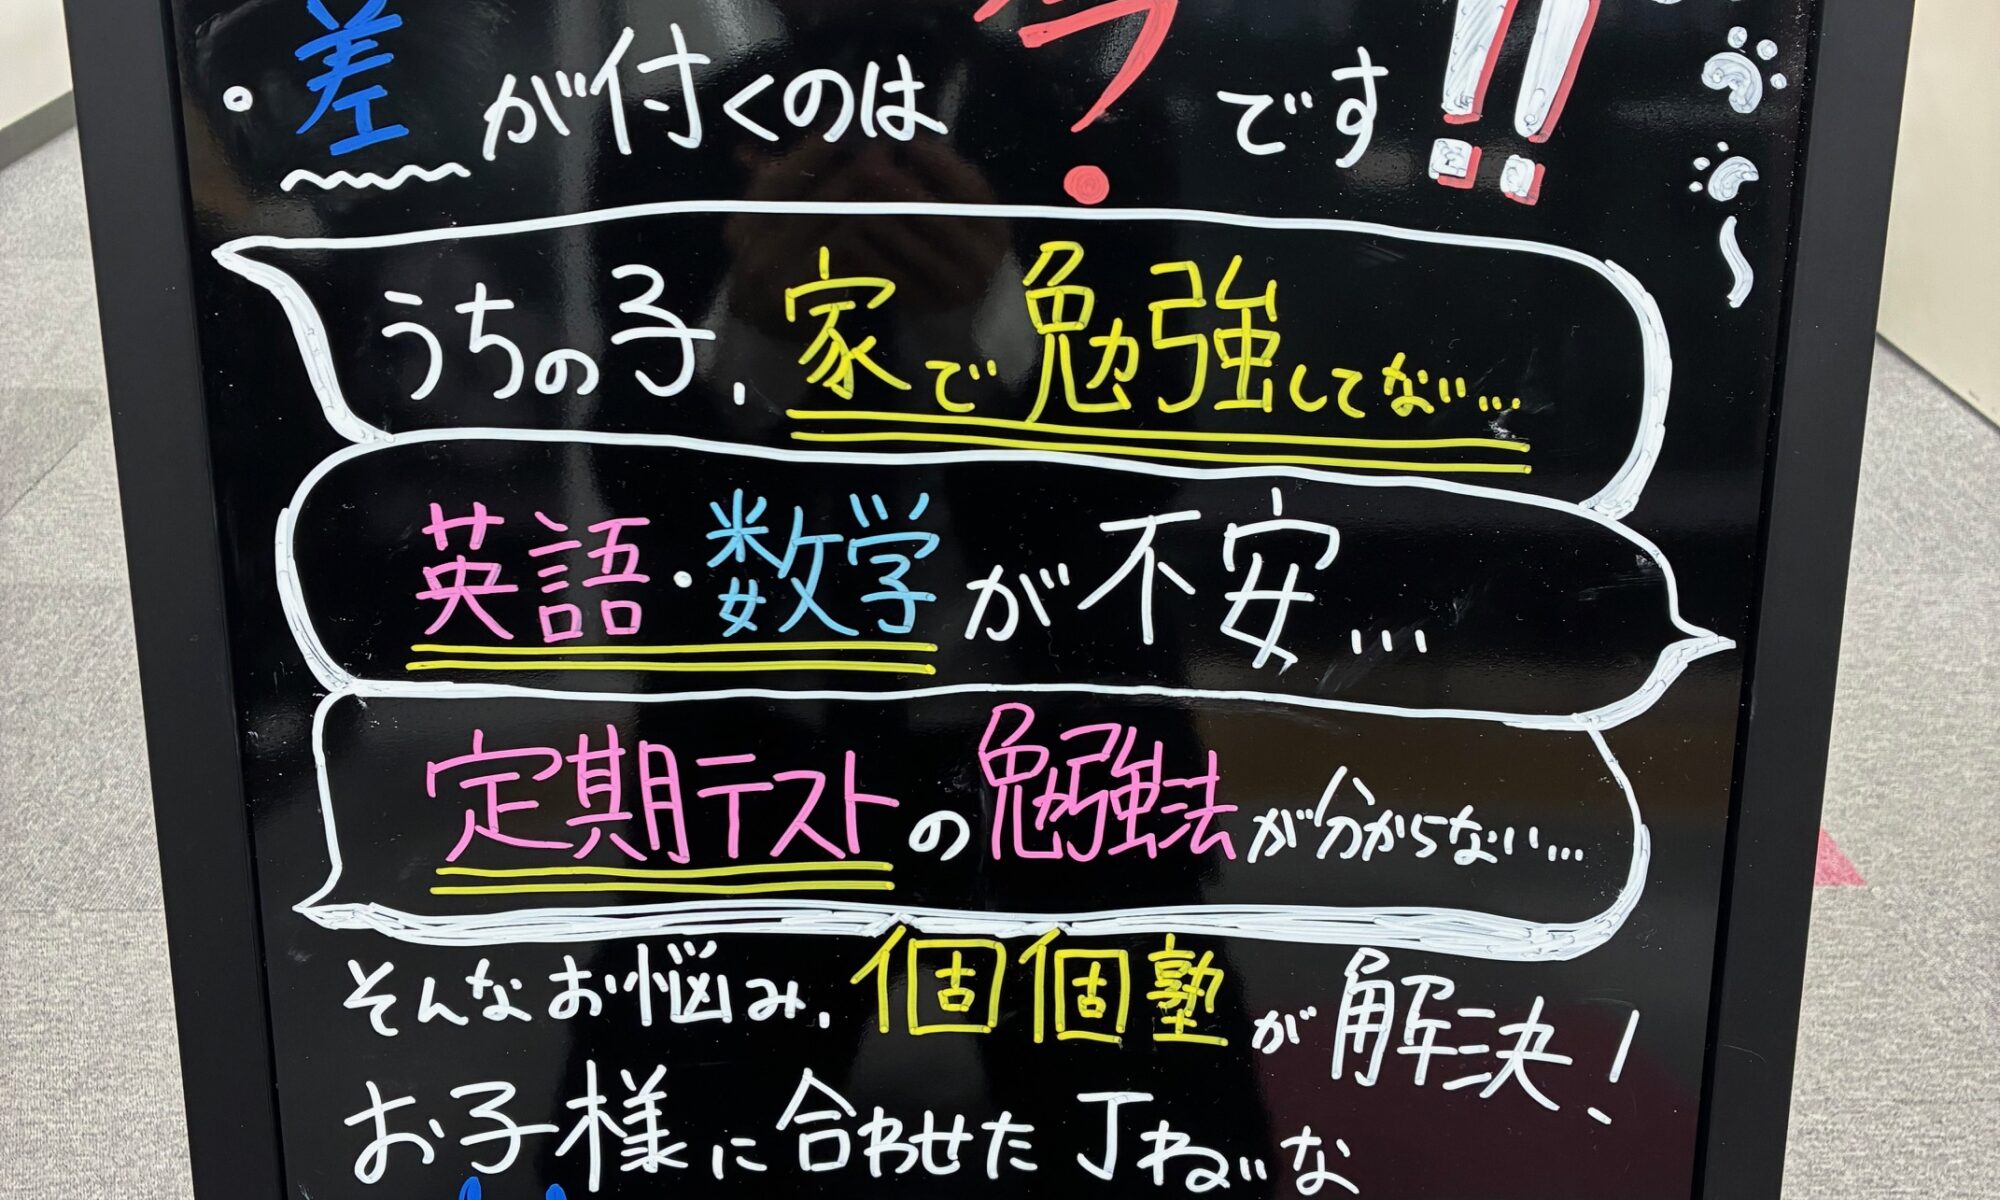 ・差が付くのは今です!!
うちの子、家で勉強してない…
英語・数学が不安…
定期テストの勉強法が分からない…
そんなお悩み、個個塾が解決！
お子様に合わせた丁ねいな